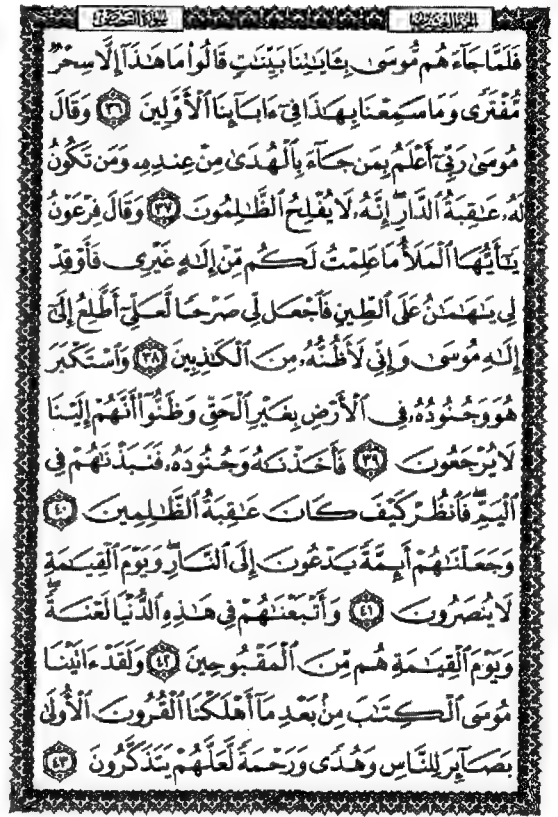 الجزء العشرون
سورة القصص
فَلَمَّا جَآءَهُم مُّوسَىٰ بِـَٔايَـٰتِنَا بَيِّنَـٰتٍ قَالُوا۟ مَا هَـٰذَآ إِلَّا سِحْرٌ
مُّفْتَرًى وَمَا سَمِعْنَا بِهَـٰذَا فِىٓ ءَابَآئِنَا ٱلْأَوَّلِينَ ٣٦ وَقَالَ
مُوسَىٰ رَبِّىٓ أَعْلَمُ بِمَن جَآءَ بِٱلْهُدَىٰ مِنْ عِندِهِۦ وَمَن تَكُونُ
لَهُۥ عَـٰقِبَةُ ٱلدَّارِ ۖ إِنَّهُۥ لَا يُفْلِحُ ٱلظَّـٰلِمُونَ ٣٧ وَقَالَ فِرْعَوْنُ
يَـٰٓأَيُّهَا ٱلْمَلَأُ مَا عَلِمْتُ لَكُم مِّنْ إِلَـٰهٍ غَيْرِى فَأَوْقِدْ
لِى يَـٰهَـٰمَـٰنُ عَلَى ٱلطِّينِ فَٱجْعَل لِّى صَرْحًا لَّعَلِّىٓ أَطَّلِعُ إِلَىٰٓ
إِلَـٰهِ مُوسَىٰ وَإِنِّى لَأَظُنُّهُۥ مِنَ ٱلْكَـٰذِبِينَ ٣٨ وَٱسْتَكْبَرَ
هُوَ وَجُنُودُهُۥ فِى ٱلْأَرْضِ بِغَيْرِ ٱلْحَقِّ وَظَنُّوٓا۟ أَنَّهُمْ إِلَيْنَا
لَا يُرْجَعُونَ ٣٩ فَأَخَذْنَـٰهُ وَجُنُودَهُۥ فَنَبَذْنَـٰهُمْ فِى
ٱلْيَمِّ ۖ فَٱنظُرْ كَيْفَ كَانَ عَـٰقِبَةُ ٱلظَّـٰلِمِينَ ٤٠
وَجَعَلْنَـٰهُمْ أَئِمَّةً يَدْعُونَ إِلَى ٱلنَّارِ ۖ وَيَوْمَ ٱلْقِيَـٰمَةِ
لَا يُنصَرُونَ ٤١ وَأَتْبَعْنَـٰهُمْ فِى هَـٰذِهِ ٱلدُّنْيَا لَعْنَةً ۖ
وَيَوْمَ ٱلْقِيَـٰمَةِ هُم مِّنَ ٱلْمَقْبُوحِينَ ٤٢ وَلَقَدْ ءَاتَيْنَا
مُوسَى ٱلْكِتَـٰبَ مِنۢ بَعْدِ مَآ أَهْلَكْنَا ٱلْقُرُونَ ٱلْأُولَىٰ
بَصَآئِرَ لِلنَّاسِ وَهُدًى وَرَحْمَةً لَّعَلَّهُمْ يَتَذَكَّرُونَ ٤٣